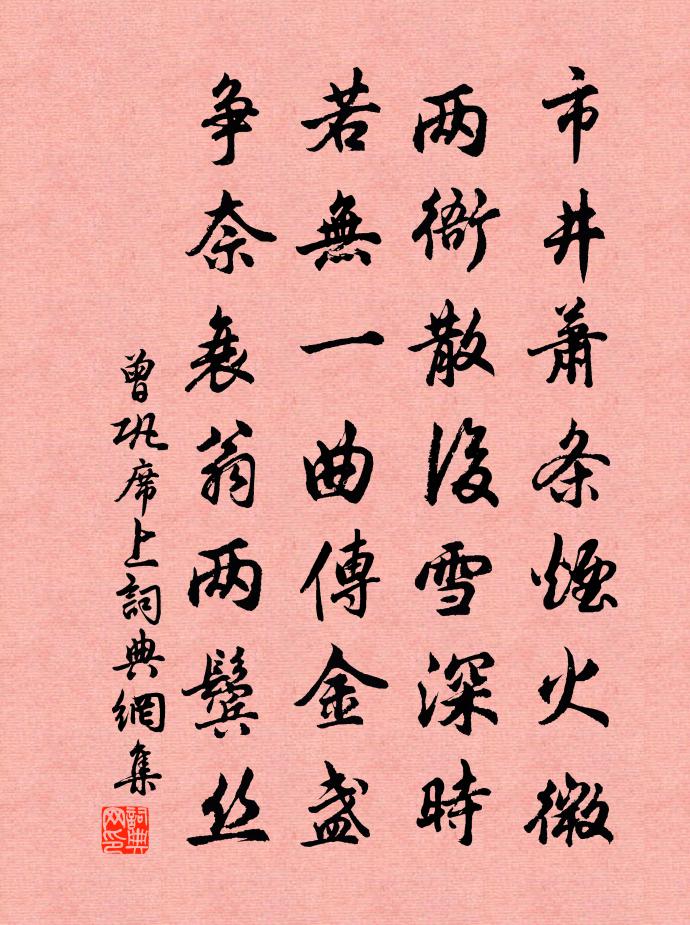 市井萧条煙火微
两衙散後雪深時
若無一曲傳金盏
争奈衰翁两鬓丝
曾巩席上詞典網集
詞典网印